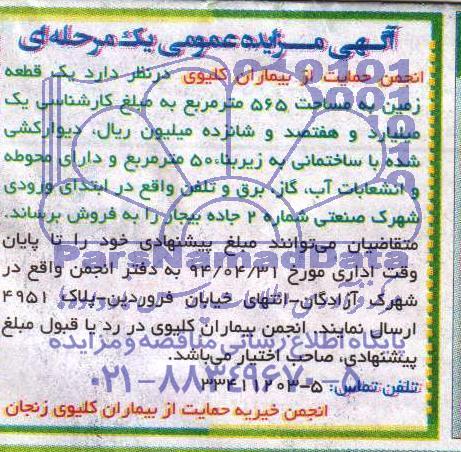 آگهی مزایده عمومی یک مرحله‌ای
انجمن حمایت از بیماران کلیوی درنظر دارد یک قطعه
زمین به مساحت ۵۶۵ مترمربع به مبلغ کارشناسی یک
میلیارد و هفتصد و شانزده میلیون ریال، دیوارکشی
شده با ساختمانی به زیربنای ۵۰ مترمربع و دارای محوطه
و انشعابات آب، گاز، برق و تلفن واقع در ابتدای ورودی
شهرک صنعتی شماره ۲ جاده بیجار را به فروش برساند.
متقاضیان می‌توانند مبلغ پیشنهادی خود را تا پایان
ParsNamadData
وقت اداری مورخ ۹۴/۰۴/۳۱ به دفتر انجمن واقع در
شهرک آزادگان-انتهای خیابان فروردین-پلاک ۴۹۵۱
ارسال نمایند. انجمن بیماران کلیوی در رد یا قبول مبلغ
پایگاه اطلاع رسانی مناقصه و مزایده
پیشنهادی، صاحب اختیار می‌باشد.
۰۲۱-۸۸۳۴۹۶۷۰-۵
تلفن تماس: ۵-۳۳۴۱۱۲۰۳
انجمن خیریه حمایت از بیماران کلیوی زنجان